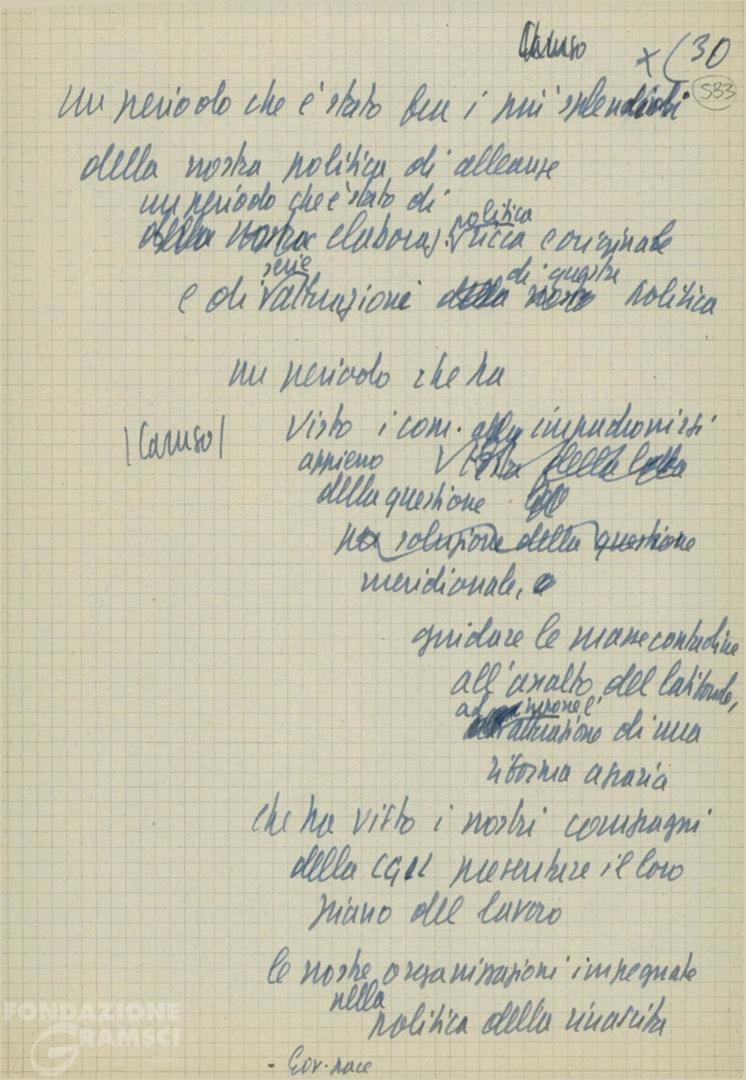 Caruso x (30
533
un periodo che è stato fra i più splendidi
della nostra politica di alleanze
un periodo che è stato di
della nostra elaboraz. politica ricca e originale
e di serie attuazioni della nostra di questa politica
un periodo che ha
|Caruso| visto i com. impadronirsi
appieno della lotta
della questione
soluzione della questione
meridionale,
guidare le masse contadine
all'assalto del latifondo,
ad imporre l'
attuazione di una
riforma agraria
che ha visto i nostri compagni
della CGIL presentare il loro
piano del lavoro
le nostre organizzazioni impegnate
nella
politica della rinascita
- Gov. pace
FONDAZIONE
GRAMSCI